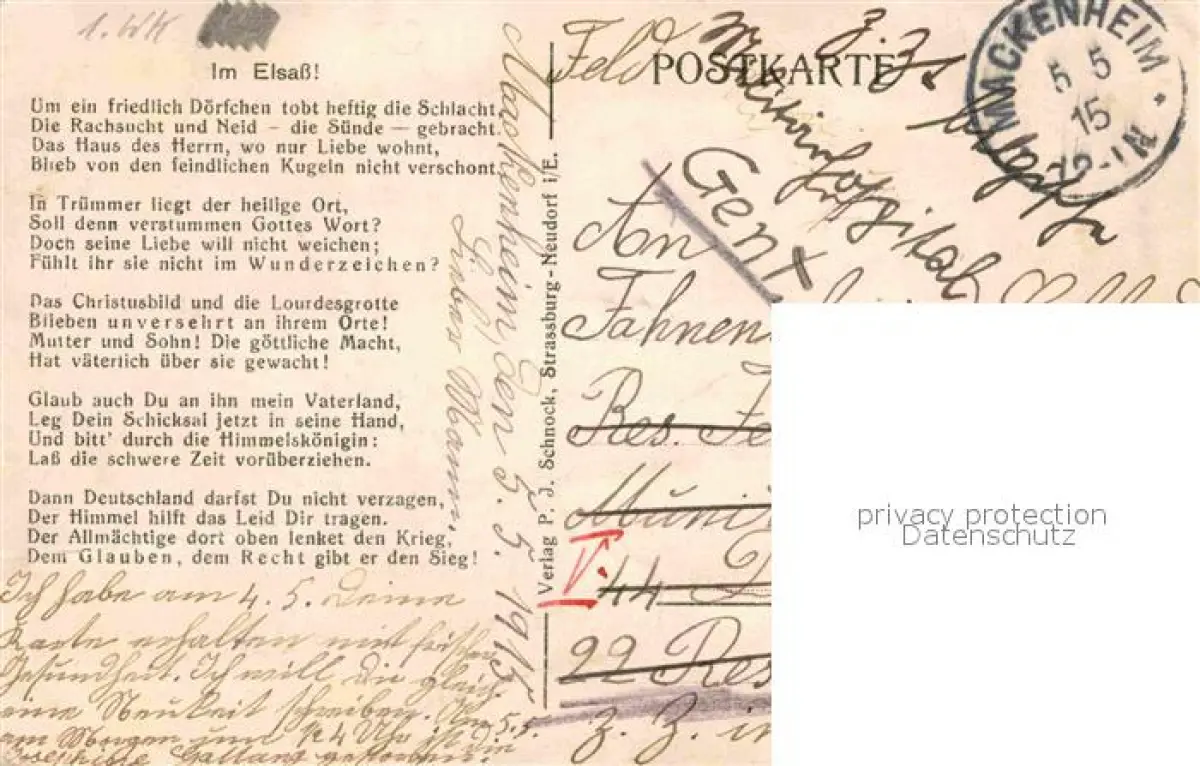 1. WK
Im Elsaß!
Um ein friedlich Dörfchen tobt heftig die Schlacht,
Die Rachsucht und Neid – die Sünde – gebracht.
Das Haus des Herrn, wo nur Liebe wohnt,
Blieb von den feindlichen Kugeln nicht verschont.
In Trümmer liegt der heilige Ort,
Soll denn verstummen Gottes Wort?
Doch seine Liebe will nicht weichen;
Fühlt ihr sie nicht im Wunderzeichen?
Das Christusbild und die Lourdesgrotte
Blieben unversehrt an ihrem Orte!
Mutter und Sohn! Die göttliche Macht,
Hat väterlich über sie gewacht!
Glaub auch Du an ihn mein Vaterland,
Leg Dein Schicksal jetzt in seine Hand,
Und bitt' durch die Himmelskönigin:
Laß die schwere Zeit vorüberziehen.
Dann Deutschland darfst Du nicht verzagen,
Der Himmel hilft das Leid Dir tragen.
Der Allmächtige dort oben lenket den Krieg,
Dem Glauben, dem Recht gibt er den Sieg!
Ich habe am 4. 5. Deine
Karte erhalten mit frischer
Gesundheit. Ich will die gleich
eine Neukeit schreiben. Am 5.5.
am Morgen um 4 Uhr
Mackenheim, den 5. 5. 1915
Lieber Mann.
Verlag P. J. Schnock, Strassburg-Neudorf i/E.
Feld POSTKARTE
z. Z.
Militärhospital
Gent
MACKENHEIM
5 5
15
An
Fahnen
Res.
Muni
V. 44
22 Res
z. Z. in
privacy protection
Datenschutz